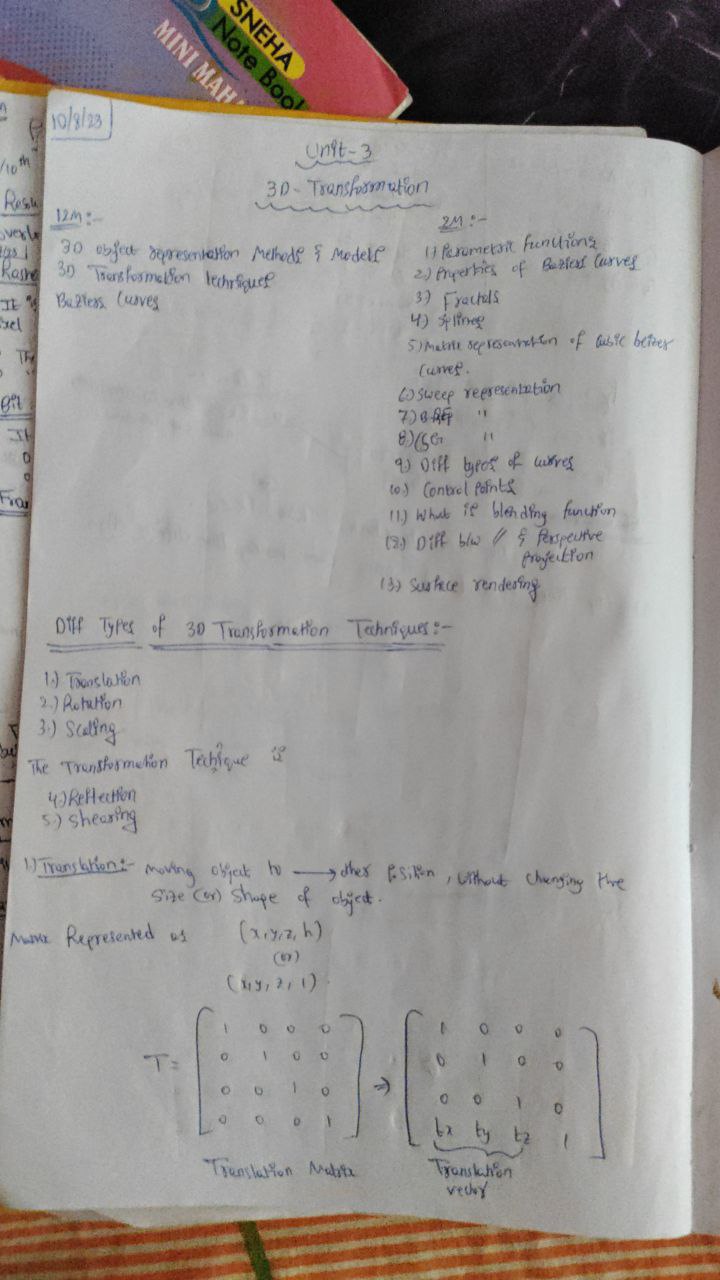 SNEHA
Note Book
MINI MAHA
10/8/23
Unit-3
3D-Transformation
12M:-
3D object representation Methods & Models
3D Transformation techniques
Baziers Curves
2M:-
1) Parametric functions
2) Properties of Baziers Curves
3) Fractals
4) Splines
5) Matrix representation of cubic beizer
Curves.
6) Sweep representation
7) B-REP "
8) CSG "
9) Diff types of curves
10) Control Points
11) What is blending function
12) Diff b/w // & Perspective
Projection
13) Surface rendering
Diff Types of 3D Transformation Techniques:-
1.) Translation
2.) Rotation
3.) Scaling
The Transformation Technique is
4.) Reflection
5.) Shearing
1) Translation:- moving object to → other Position, without changing the
size (or) shape of object.
Matrix Represented as (x,y,z,h)
(or)
(x,y,z,1)
T= [ 1 0 0 0 ] ⇒ [ 1 0 0 0 ]
0 1 0 0 0 1 0 0
0 0 1 0 0 0 1 0
0 0 0 1 tx ty tz 1
Translation Matrix Translation
vector